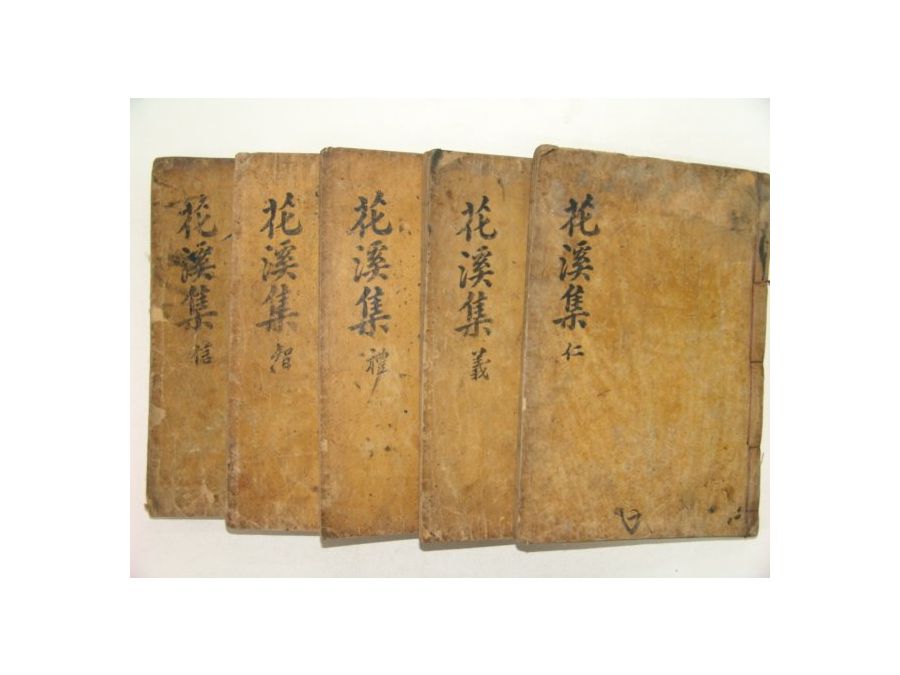 花溪集 仁
花溪集 義
花溪集 禮
花溪集 智
花溪集 信